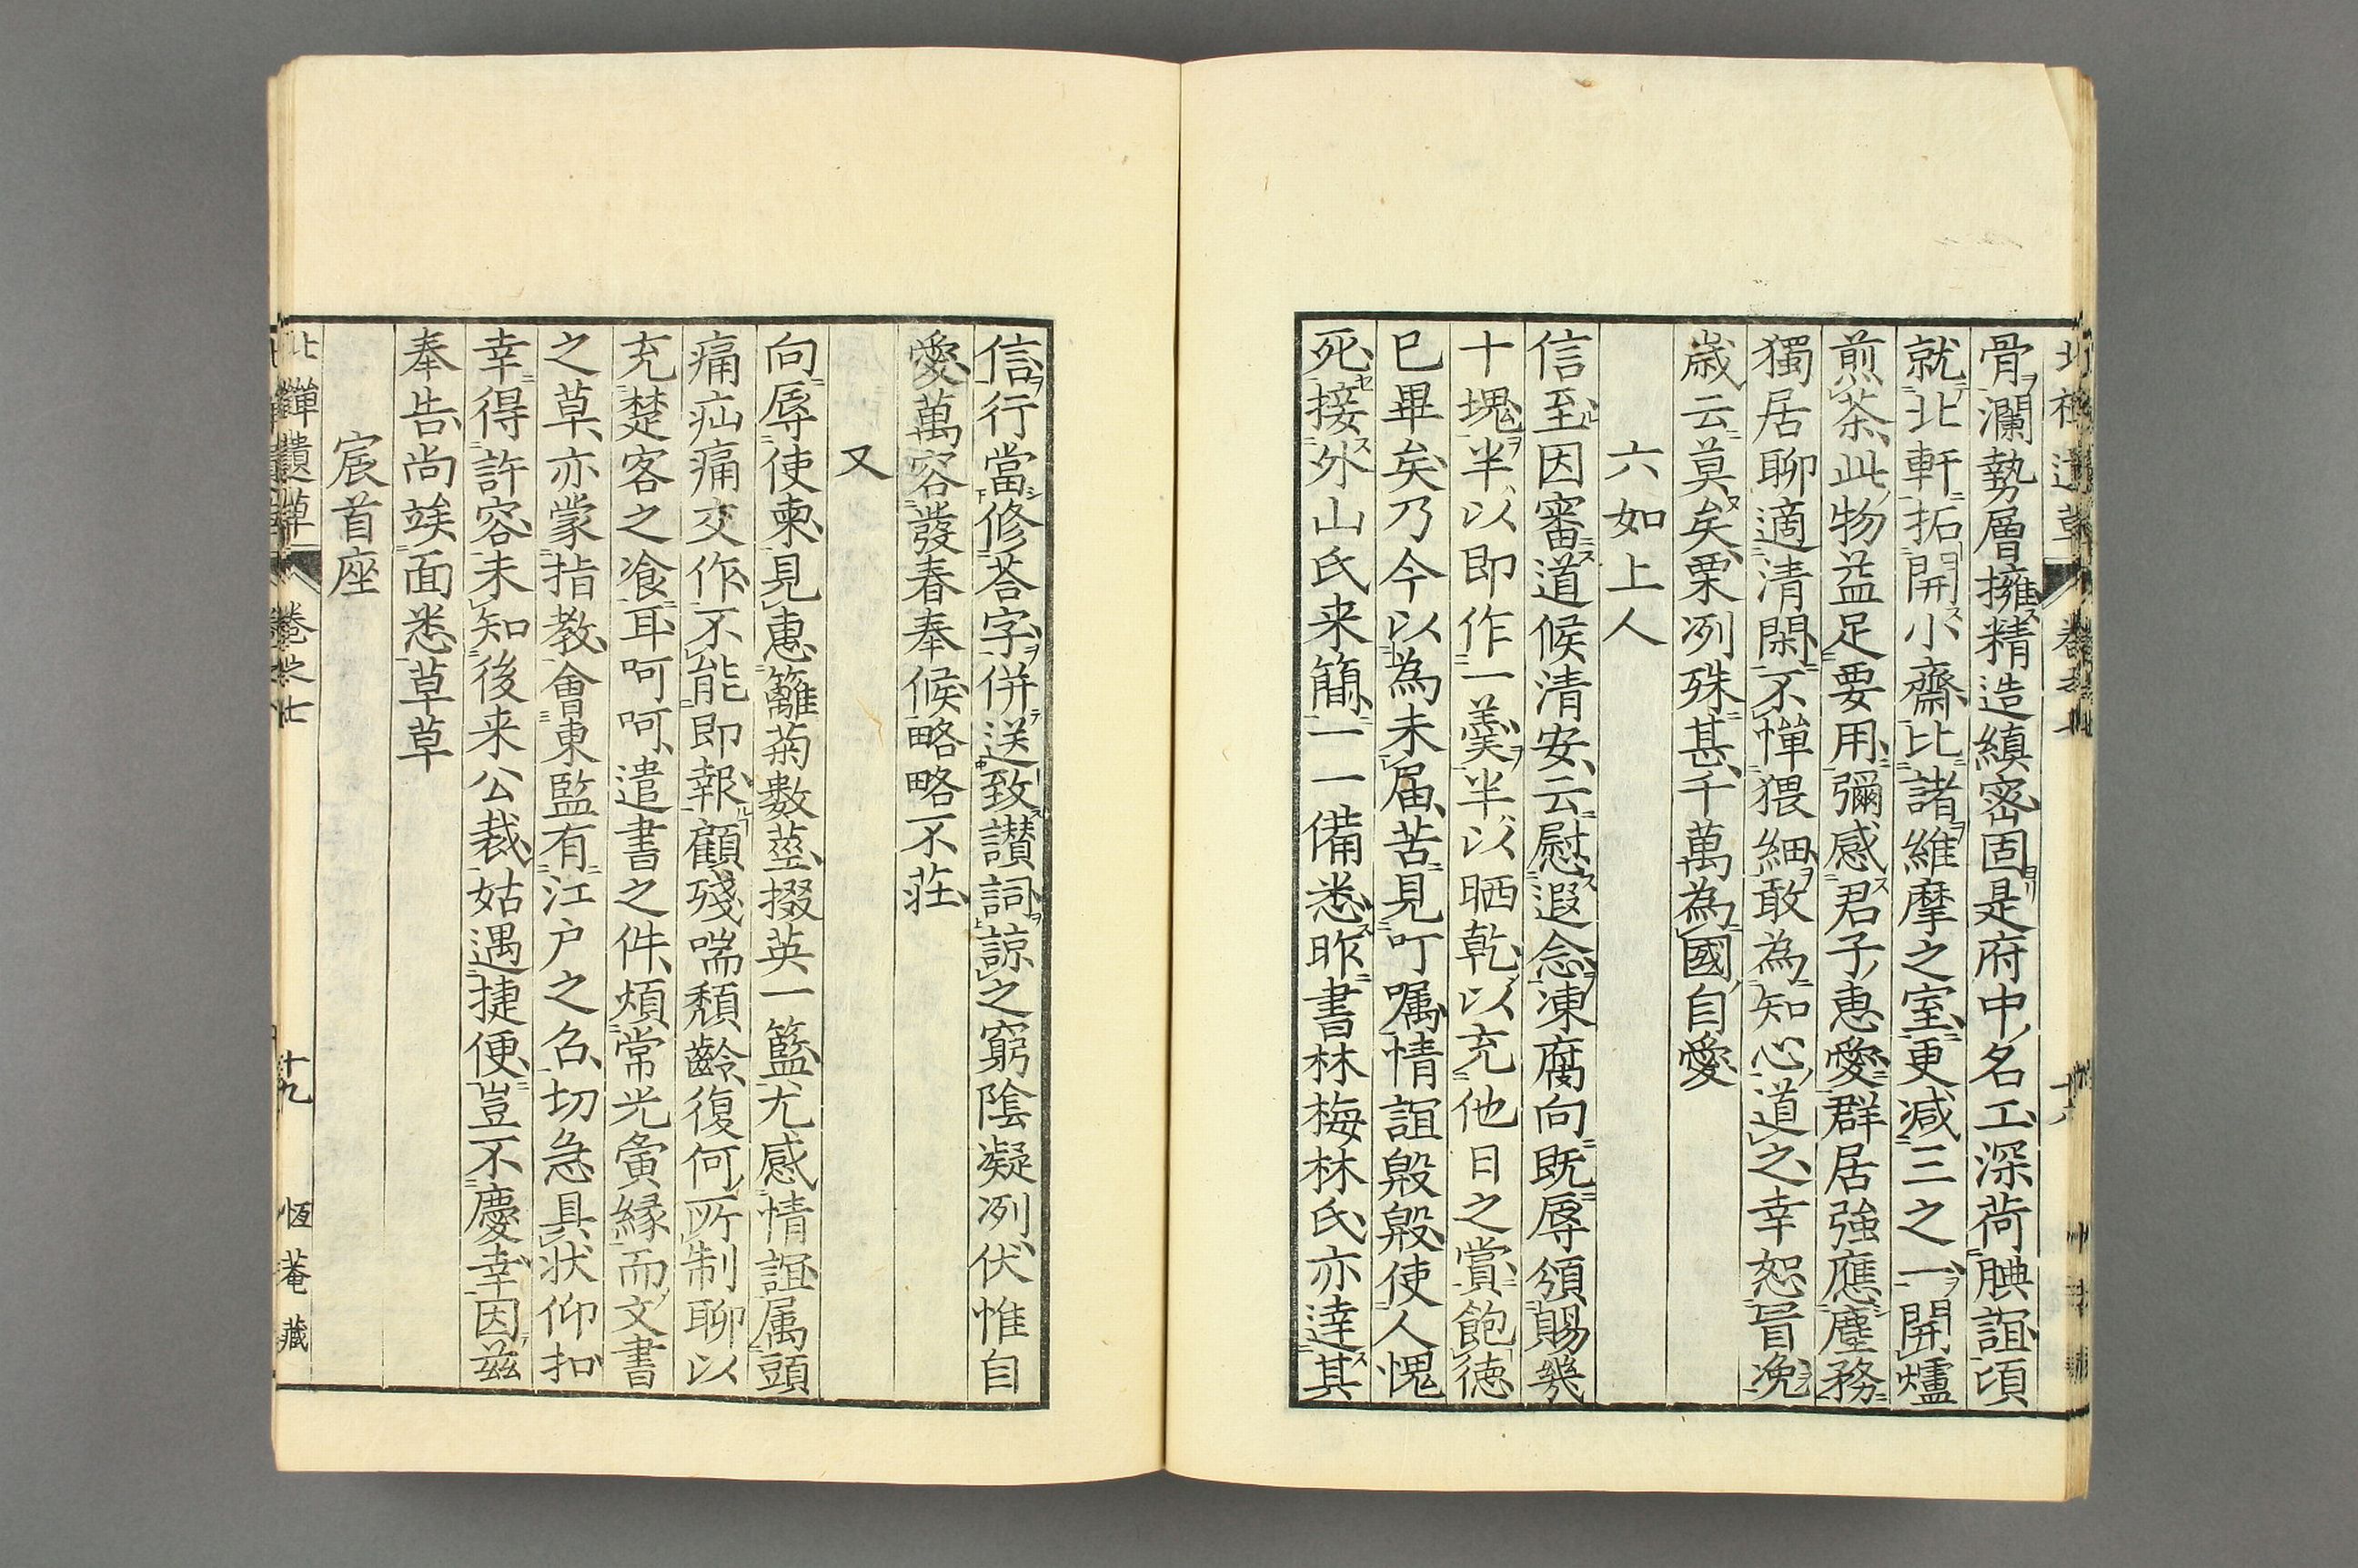 骨瀾勢層擁精造縝密固是府中名工深荷腆誼頃
就北軒拓開小齋比諸維摩之室更減三之一開爐
煎茶此物益足要用彌感君子惠愛群居強應塵務
獨居聊適清閑不憚猥細敢為知心道之幸恕冒逸
歳云莫矣栗冽殊甚千萬為國自愛
六如上人
信至因審道候清安云慰遐念凍腐向既辱頒賜幾
十塊半以即作一羹半以晒乾以充他日之賞飽徳
已畢矣乃今以為未届苦見叮嘱情誼毇毇使人愧
死接外山氏来簡一一備悉昨書林梅林氏亦達其
信行當修荅字併送致讃詞諒之窮陰凝冽伏惟自
愛萬容發春奉候略略不荘
又
向辱使柬見惠籬菊數莖掇英一籃尤感情誼属頭
痛疝痛交作不能即報顧殘喘頽齡復何所制聊以
充楚客之飡耳呵呵遣書之件煩常光寅縁而文書
之草亦蒙指教會東監有江户之名切急具状仰扣
幸得許容未知後来公裁姑遇捷便豈不慶幸因茲
奉告尚竢面悉草草
宸首座
北禅遺草 巻之七 十九 恆菴藏